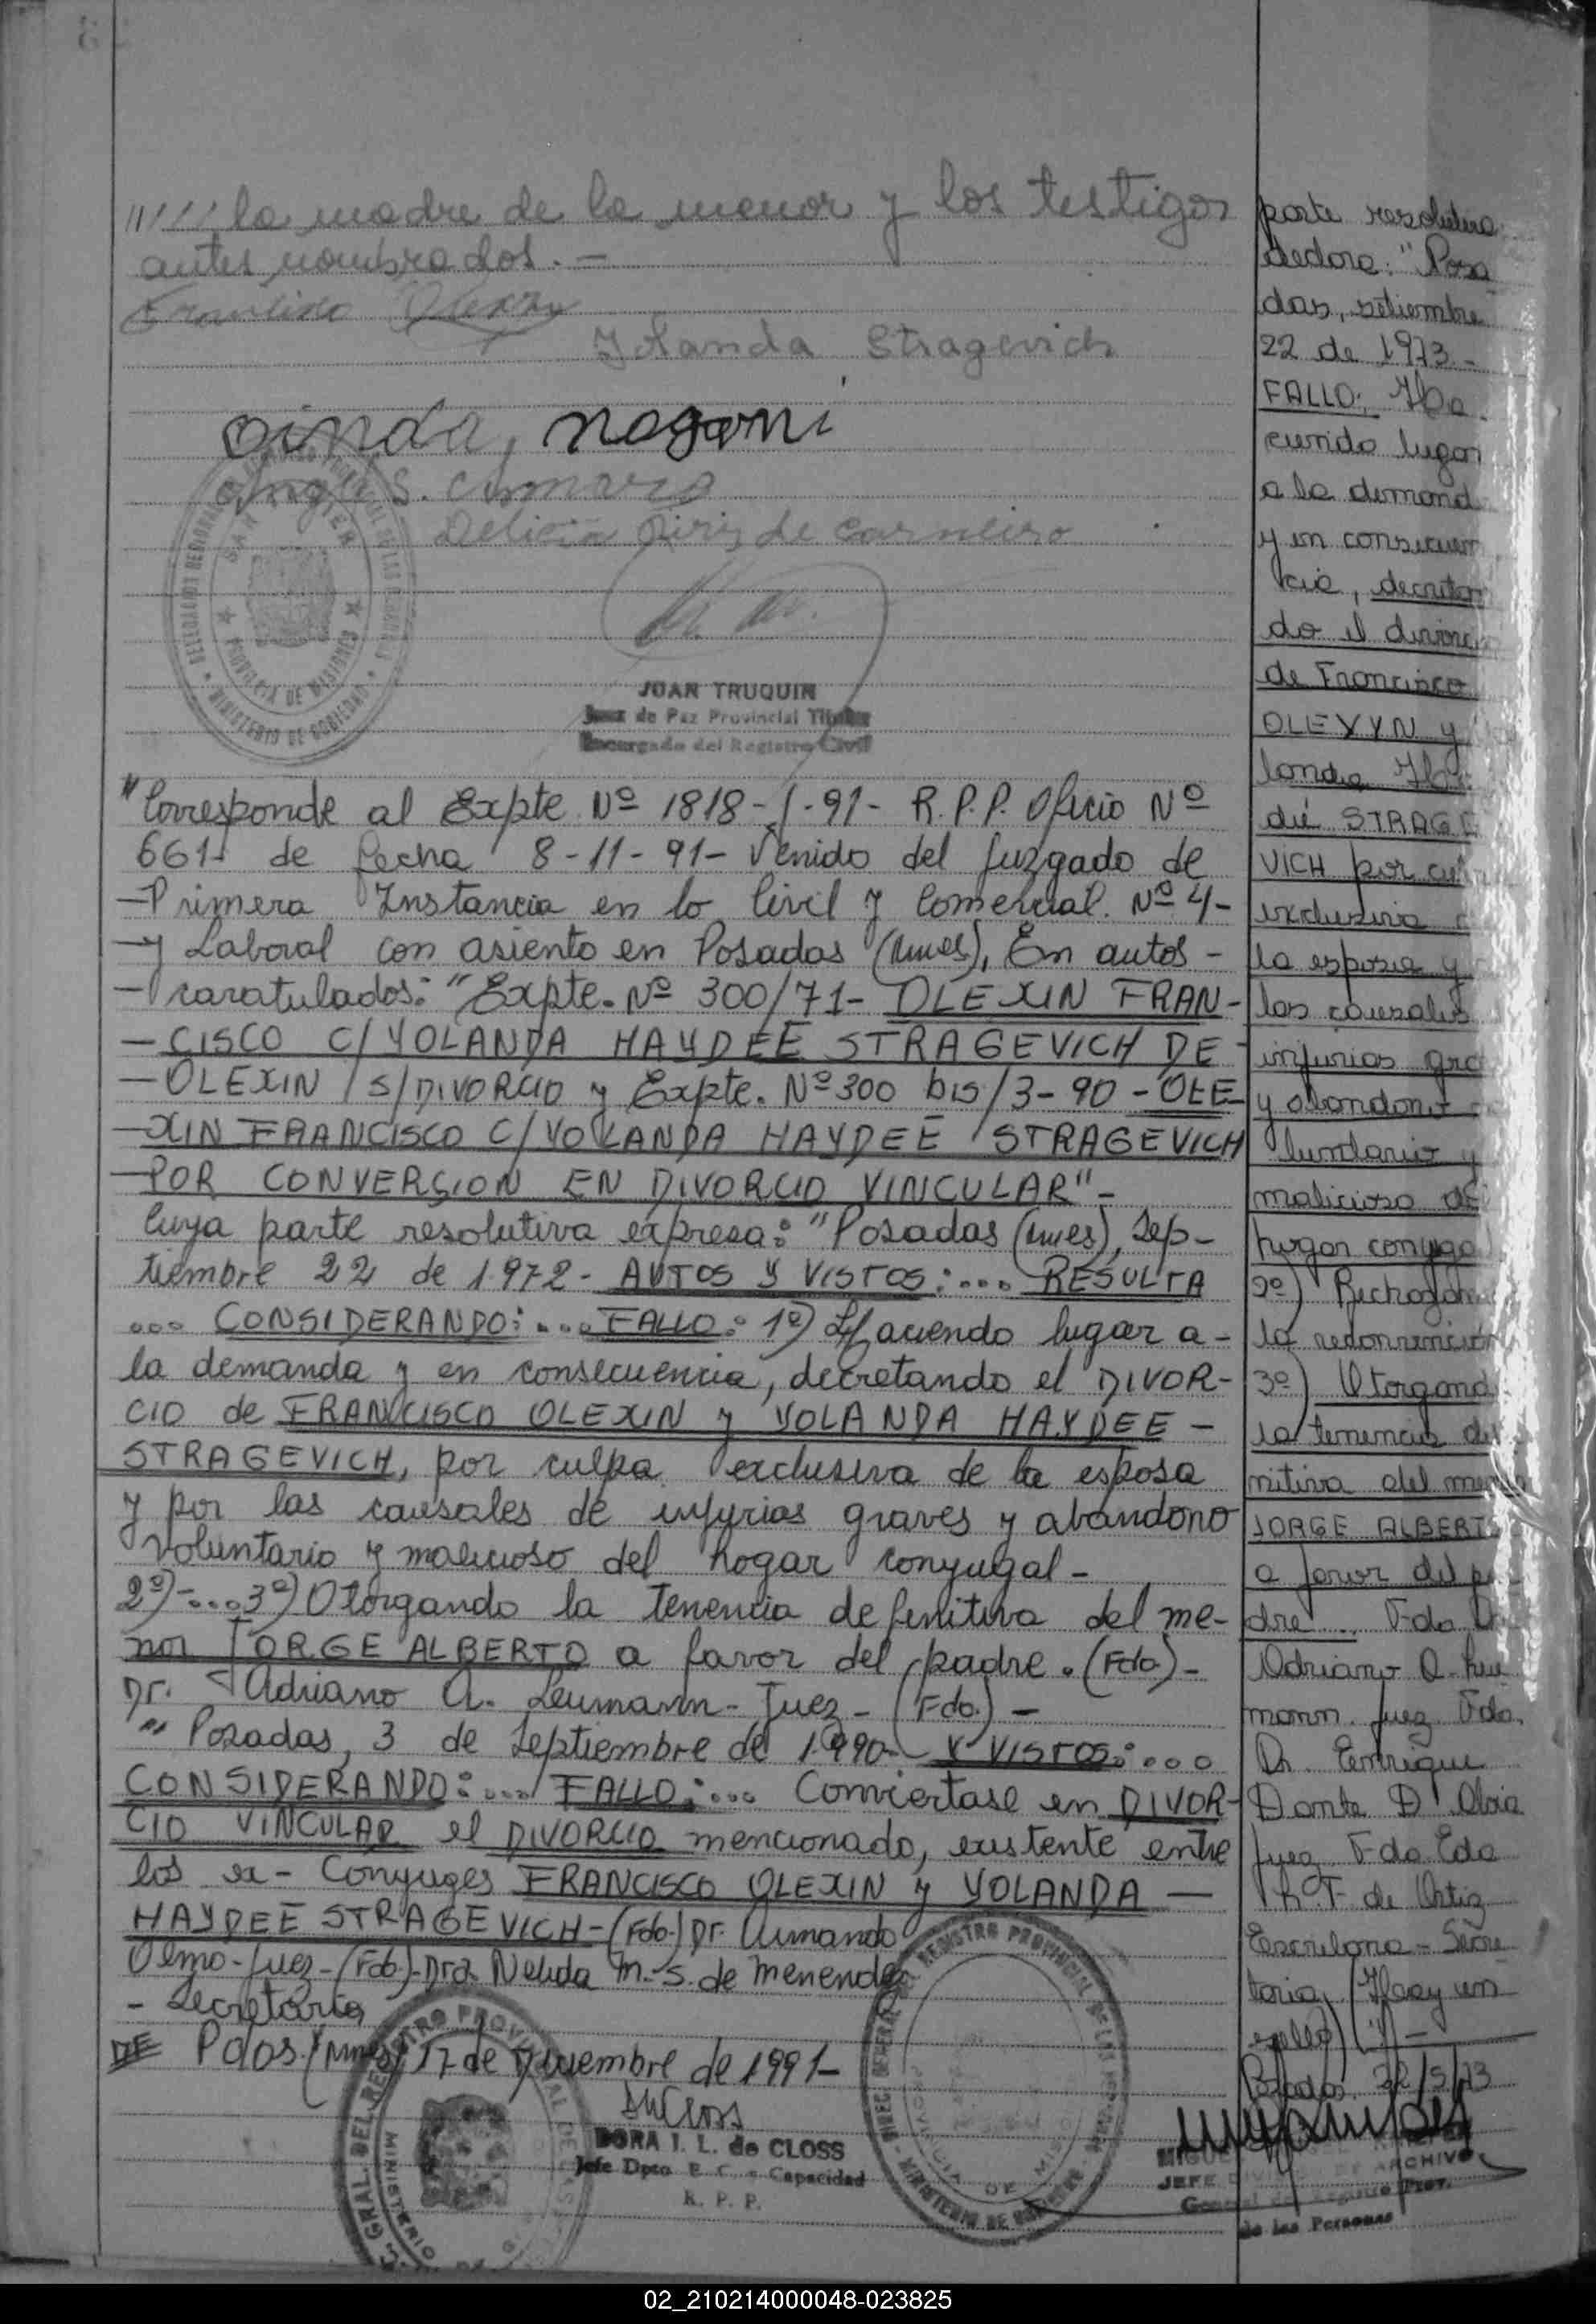 ///// la madre de la menor y los testigos
antes nombrados. -
Francisco
Yolanda Stragevich
S.
Delicia Piriz de Carneiro
SAN JAVIER
PROVINCIA DE MISIONES
MINISTERIO DE GOBIERNO
JUAN TRUQUIN
Juez de Paz Provincial Titular
Encargado del Registro Civil
"Corresponde al Expte Nº 1818-J-91- R.P.P. Oficio Nº
661- de fecha 8-11-91- Venido del Juzgado de
-Primera Instancia en lo Civil y Comercial. Nº 4-
-y Laboral con asiento en Posadas (Mnes), En autos -
- caratulados: "Expte. Nº 300/71- OLEXIN FRAN-
- CISCO C/YOLANDA HAYDEE STRAGEVICH DE -
- OLEXIN /S/DIVORCIO y Expte. Nº 300 bis/3-90 - OLE-
- XIN FRANCISCO C/YOLANDA HAYDEE STRAGEVICH
- POR CONVERSION EN DIVORCIO VINCULAR"-
Cuya parte resolutiva expresa: "Posadas (Mnes), Sep-
tiembre 22 de 1.972- AUTOS Y VISTOS:... RESULTA
... CONSIDERANDO:... FALLO: 1º) Haciendo lugar a -
la demanda y en consecuencia, decretando el DIVOR-
CIO de FRANCISCO OLEXIN y YOLANDA HAYDEE -
STRAGEVICH, por culpa exclusiva de la esposa
y por las causales de injurias graves y abandono
voluntario y malicioso del hogar conyugal -
2º)-...3º) Otorgando la tenencia definitiva del me-
nor JORGE ALBERTO a favor del padre. (Fdo.)-
Dr. Adriano A. Leumann- Juez - (Fdo.) -
"Posadas, 3 de Septiembre de 1.990- Y VISTOS:...
CONSIDERANDO:... FALLO:... Conviertase en DIVOR-
CIO VINCULAR el DIVORCIO mencionado, existente entre
los ex- Conyuges FRANCISCO OLEXIN y YOLANDA -
HAYDEE STRAGEVICH-(Fdo.) Dr. Armando
Olmo-Juez-(Fdo.)-Dra. Nelida M. S. de Menendez
- Secretaria
DE Pdas. (Mnes), 17 de Diciembre de 1991-
DORA I. L. de CLOSS
Jefe Dpto E. C. e Capacidad
R. P. P.
parte resolutiva
"Posa
das, setiembre
22 de 1973.-
FALLO: Ha
ciendo lugar
a la demand
y en consecuen
cia, decretan
do el divorci
de Francisco
OLEXYN y
landa Ha
dée STRAGE
VICH por cul
exclusiva
la esposa y
las causales
injurias gra
y abandono
luntario y
malicioso de
hogar conyuga
2º) Rechazan
la reconvención
3º) Otorgand
la tenencia de
nitiva del men
JORGE ALBERT
a favor del pa
dre ... Fdo
Adriano A. Leu
mann. Juez Fdo.
Dr. Enrique
Dante D'
Juez Fdo. Eda
T. de Ortiz
Escribana - Secre
taria (Hay un
sello)
Posadas, 22/5/73
JEFE DIVISION DE ARCHIVO
General del Registro Prov.
de las Personas
02_210214000048-023825